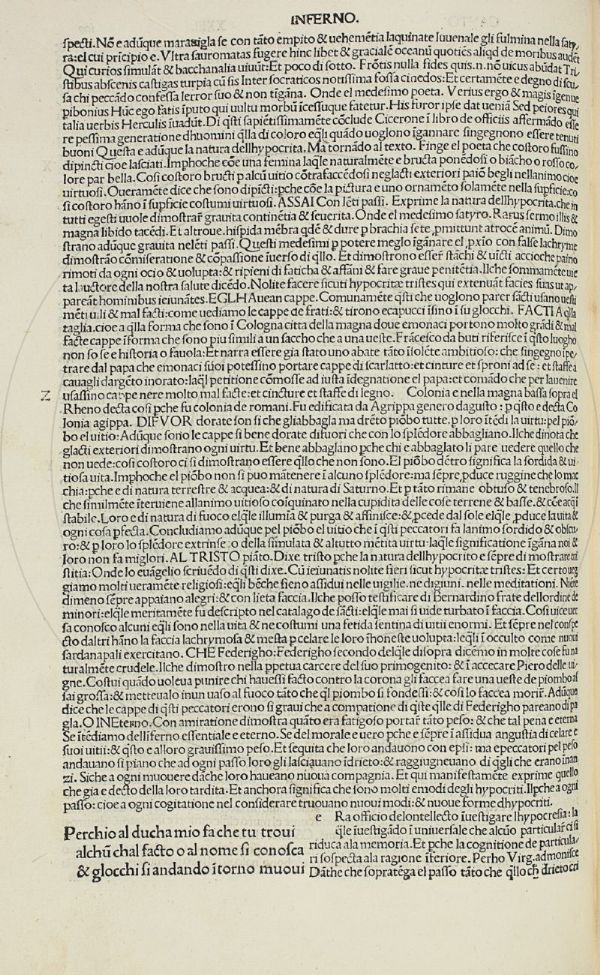 INFERNO.
specti. Nõ e adũque marauigla se con tãto ẽpito & uehemẽtia laquinate Iuuenale gli fulmina nella saty,
ra: el cui pricipio e. Vltra sauromatas fugere hinc libet & gracialẽ oceanũ quotiẽs aliqd de moribus audẽt
Qui curios simulãt & bacchanalia uiuũt: Et poco di sotto. Frõtis nulla fides quis.n. nõ uicus abũdat Tri
stibus abscenis castigas turpia cũ sis Inter socraticos notissima fossa cinedos: Et certamẽte e degno di scu
sa chi peccãdo confessa lerror suo & non tigãna. Onde el medesimo poeta. Verius ergo & magis igenue
pibonius Hũc ego fatis iputo qui uultu morbũ icessuque fatetur. His furor ipse dat ueniã Sed peiores qui
talia uerbis Herculis iuadũt. Di qsti sapiẽtissimamẽte cõclude Cicerone i libro de officiis assermãdo esse
re pessima generatione dhuomini qlla di coloro eqli quãdo uoglono igannare singegnono essere tenuti
buoni Questa e adũque la natura dellhypocrita. Ma tornãdo al texto. Finge el poeta che costoro sussino
dipincti cioe lasciati. Imphoche cõe una femina laqle naturalmẽte e bructa ponẽdosi o biãcho o rosso co,
lore par bella. Cosi costoro bructi p alcũ uitio cõtrafaccẽdosi neglacti exteriori paiõ begli nellanimo cioe
uirtuosi. Oueramẽte dice che sono dipisti: pche cõe la pistura e uno ornamẽto solamẽte nella supficie. co
si costoro hãno i supficie costumi uirtuosi. ASSAI Con lẽti passi. Exprime la natura dellhypocrita. che in
tutti egesti uuole dimostrar grauita continẽtia & seuerita. Onde el medesimo satyro. Rarus sermo illis &
magna libido tacẽdi. Et altroue. hispida mẽbra qdẽ & dure p brachia sete, pmittunt atrocẽ animũ. Dimo
strano adũque grauita nelẽti passi. Questi medesimi p potere meglo igãnare el pxio con false lachryme
dimostrão cõmiseratione & cõpassione iuerso di qllo. Et dimostrono esser stãchi & uisti accioche paino
rimoti da ogni ocio & uolupta: & ripieni di faticha & affãni & fare graue penitẽtia. Ilche sommamẽte uie
ta lauctore della nostra salute dicẽdo. Nolite facere sicuti hypocritæ tristes qui extenuat facies suas ut ap,
pareãt hominibus ieiunãtes. EGLHAuean cappe. Comunamẽte qsti che uoglono parer sãcti usano uesti
mẽti uili & mal facti: come uediamo le cappe de frati: & tirono ecapucci isino i su glocchi. FACTI A qlla
taglia. cioe a qlla forma che sono i Cologna citta della magna doue emonaci portono molto grãdi & mal
facte cappe iforma che sono piu simili a un saccho che a una ueste. Frãcesco da buti riferisce i qsto luogho
non so se e historia o fauola: Et narra essere gia stato uno abate tãto isolẽte ambitioso: che singegno ipe,
trare dal papa che emonaci suoi potessino portare cappe di scarlatto: et cinture et sproni ad se: et staffe a
cauagli dargẽto inorato: laql petitione cõmosse ad iusta idegnatione el papa: et comãdo che per lauenire
Z usassino cappe nere molto mal facte: et cincture et staffe di legno. Colonia e nella magna bassa sopra el
Rheno decta cosi pche fu colonia de romani. Fu edificata da Agrippa genero dagusto: p qsto e decta Co
lonia agippa. DI FVOR dorate son si che gliabbagla ma drẽto piõbo tutte. p loro itẽdi la uirtu: pel piõ,
bo el uitio: Adũque sono le cappe si bene dorate difuori che con lo splẽdore abbaglano. Ilche dinota che
glacti exteriori dimostrano ogni uirtu. Et bene abbaglano pche chi e abbaglato li pare uedere quello che
non uede: cosi costoro ci si dimostrano essere qllo che non sono. El piõbo dẽtro significa la sordida & ui,
tiosa uita. Imphoche el piõbo non si puo mãtenere i alcuno splẽdore: ma sẽpre, pduce ruggine che lo mac
chia: pche e di natura terrestre & acquea: & di natura di Saturno. Et p tãto rimane obtuso & tenebroso. Il
che similmẽte iteruiene allanimo uitioso coiquinato nella cupidita delle cose terrene & basse. & cõe acq i
stabile. Loro e di natura di fuoco elqle illumia & purga & affinisce: & pcede dal sole elqle pduce lauita &
ogni cosa pfecta. Concludiamo adũque pel piõbo el uitio che i qsti peccatori fa lanimo sordido & obscu,
ro: & p loro lo splẽdore extrĩseco della simulata & altutto mẽtita uirtu: laqle significatione igãna noi &
loro non fa migliori. AL TRISTO piãto. Dixe tristo pche la natura dellhypocrito e sẽpre di mostrare me
stitia: Onde lo euãgelio scriuẽdo di qsti dixe. Cũ ieiunatis nolite fieri sicut hypocritæ tristes: Et certo ueg
giamo molti ueramẽte religiosi: eqli bẽche sieno assidui nelle uigilie. ne digiuni. nelle meditationi. Niẽte
dimeno sẽpre appaiano alegri: & con lieta faccia. Ilche posso testificare di Bernardino frate dellordine de
minori: elqle meritamẽte fu descripto nel catalago de sãcti: elqle mai si uide turbato i faccia. Cosi uice uer
sa conosco alcuni eqli sono nella uita & ne costumi una fetida sentina di uitii enormi. Et sẽpre nel conspe
cto daltri hãno la faccia lachrymosa & mesta p celare le loro ihoneste uolupta: leqli i occulto come nuoui
sardanapali exercitano. CHE Federigho: Federigho secondo delqle disopra dicemo in molte cose fu na
turalmẽte crudele. Ilche dimostro nella ppetua carcere del suo primogenito: & i accecare Piero delle ui,
gne. Costui quãdo uoleua punire chi hauessi facto contro la corona gli faccea fare una ueste de piombo as
sai grossa: & metteualo inun uaso al fuoco tãto che ql piombo si fondessi: & cosi lo faccea morir. Adũque
dice che le cappe di qsti peccatori erono si graui che a compatione di qste qlle di Federigho pareano di pa
gla. O INEterno. Con amiratione dimostra quãto era fatigoso portar tãto peso: & che tal pena e eterna
Se itẽdiamo dellĩferno essentiale e eterno. Se del morale e uero pche e sẽpre i assidua angustia di celare e
suoi uitii: & qsto e alloro grauissimo peso. Et sequita che loro andauono con epsi: ma epeccatori pel peso
andauano si piano che ad ogni passo loro gli lasciquano idrieto: & raggiugneuano di qgli che erano inan
zi. Siche a ogni muouere dãche loro haueano nuoua compagnia. Et qui manifestamẽte exprime quello
che gia e decto della loro tardita. Et anchora significa che sono molti emodi degli hypocriti. Ilche a ogni
passo: cioe a ogni cogitatione nel considerare truouano nuoui modi: & nuoue forme dhypocriti.
Perchio al ducha mio fa che tu troui
alchũ chal facto o al nome si conosca
& glocchi si andando itorno muoui
e Ra officio delontellecto iuestigare lhypocresia: la
qle iuestigãdo i uniuersale che alcuõ particular ci si
riduca ala memoria. Et pche la cognitione de particula,
ri sospecta ala ragione iferiore. Perho Virg. admonisce
Dãthe che sopratẽga el passo tãto che qllo ch drieto cci